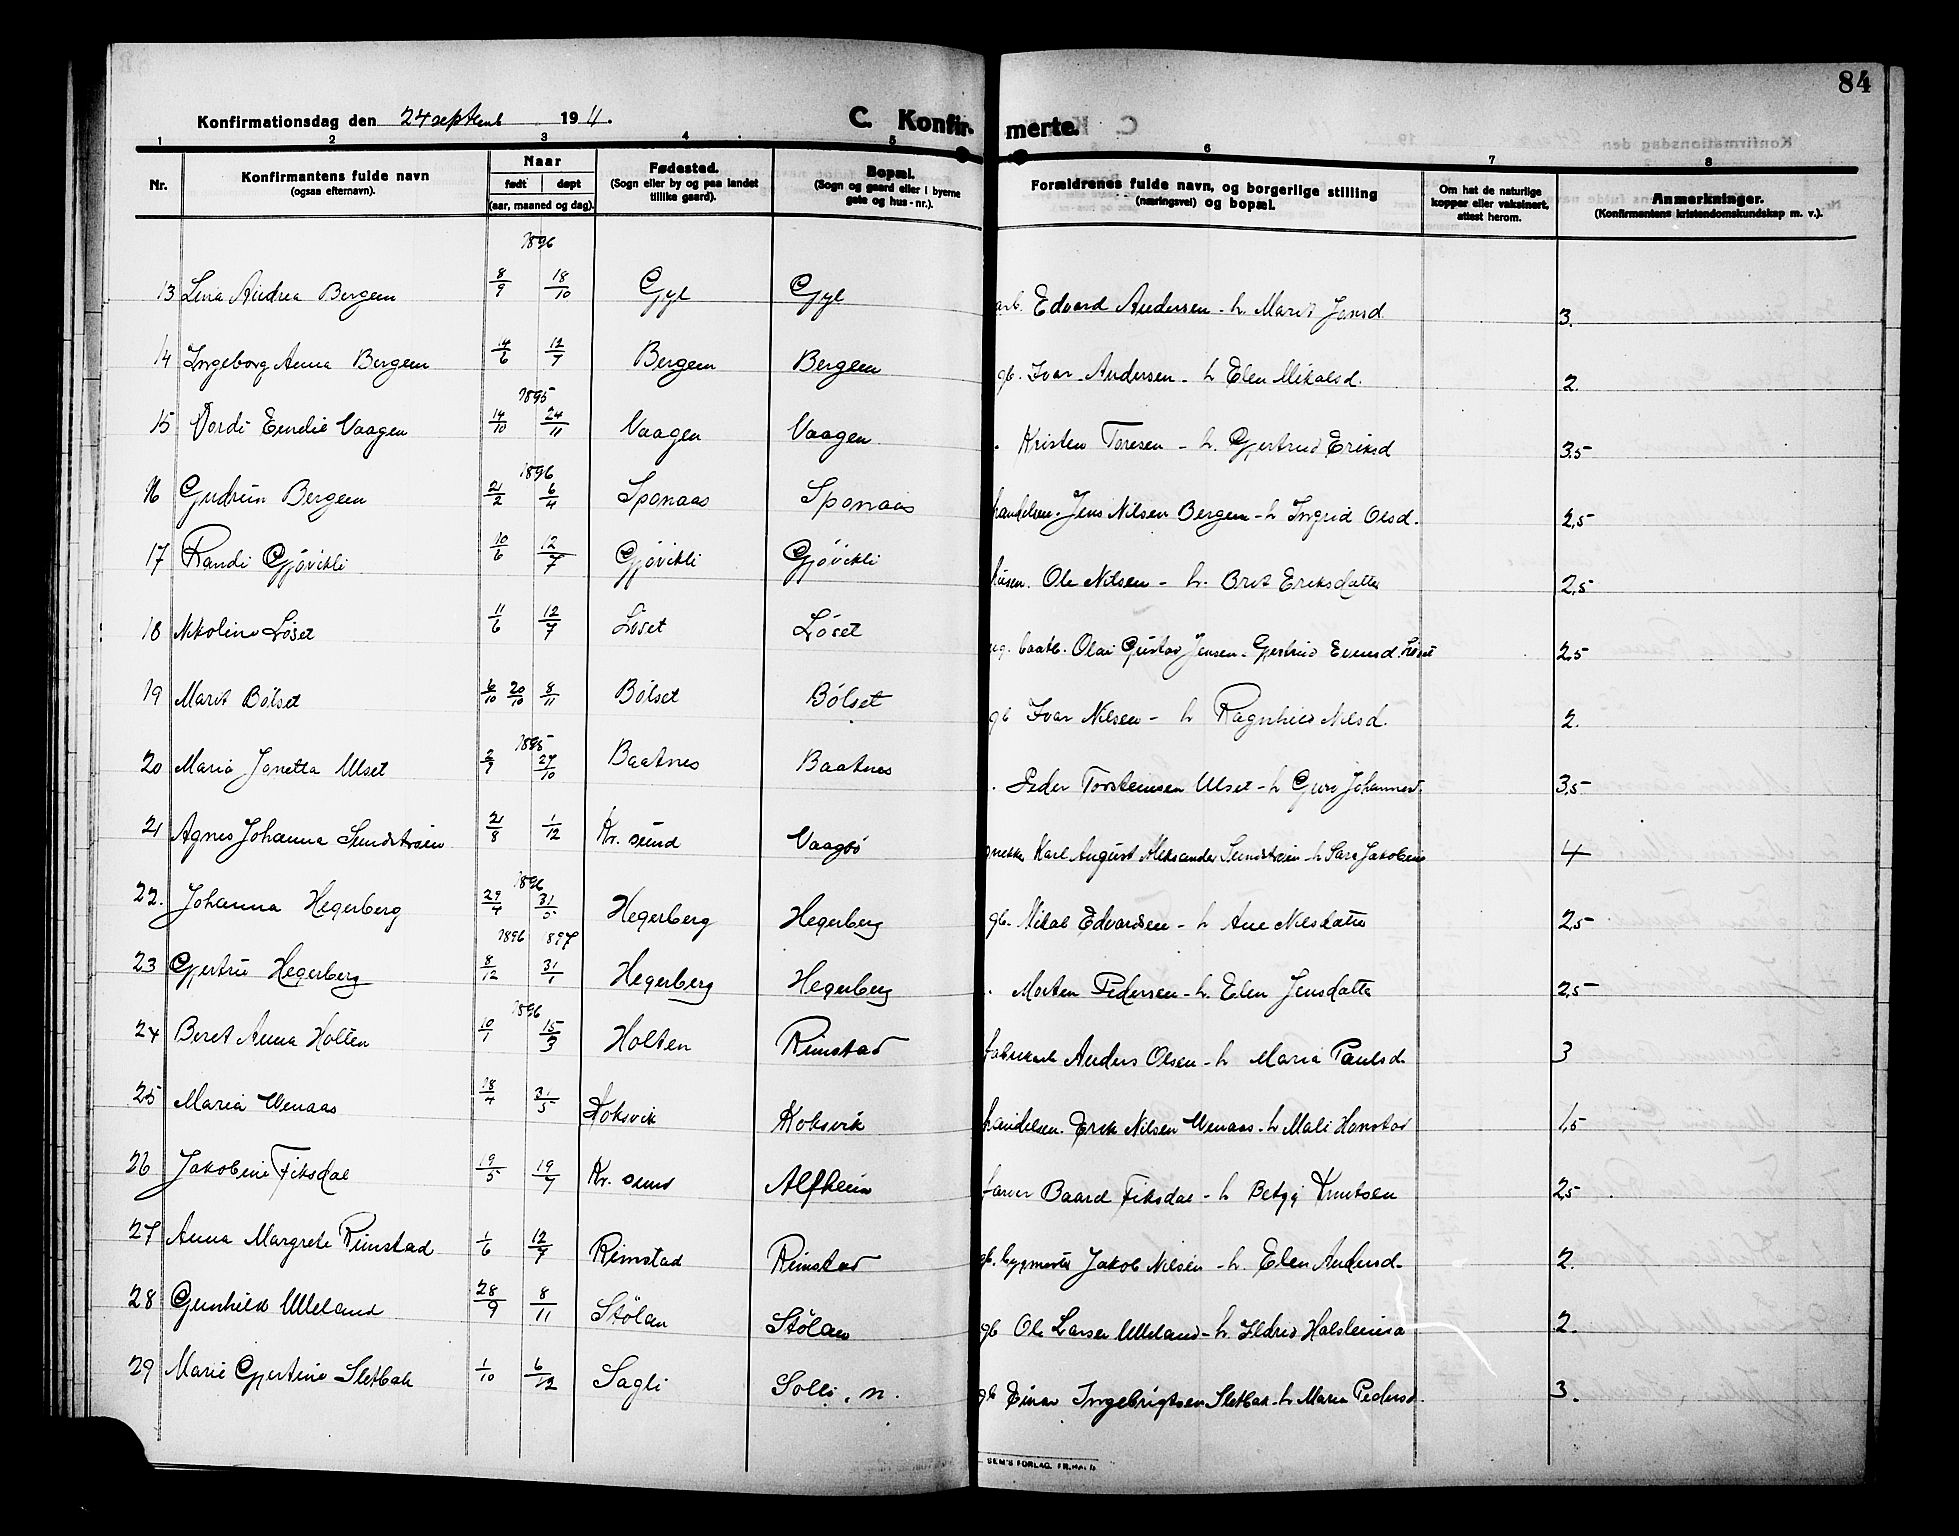 84
Konfirmationsdag den 24 septemb 1911.
C. Konfirmerte.
1 2 3 4 5 6 7 8
Nr. Konfirmantens fulde navn (ogsaa efternavn). Naar født døpt (aar, maaned og dag). Fødested. (Sogn eller by og paa landet tillike gaard). Bopæl. (Sogn og gaard eller i byerne gate og hus-nr.). Forældrenes fulde navn, og borgerlige stilling (næringsvei) og bopæl. Om hat de naturlige kopper eller vaksinert, attest herom. Anmerkninger. (Konfirmantens kristendomskundskap m. v.).
1896
13 Lina Andrea Bergem 8/9 18/10 Gyl Gyl arb. Edvard Andersen - h. Marit Jonsd 3.
14 Ingeborg Anna Bergem 14/6 12/7 Bergem Bergem gb. Ivar Andersen - h Elen Mikalsd. 2.
1895
15 Dordi Emelie Vaagen 14/10 24/11 Vaagen Vaagen . Kristen Toresen - h. Gjertrud Eriksd 3.5
1896
16 Gudrun Bergem 21/2 6/4 Sponaas Sponaas handelsm. Jens Nilsen Bergem - h Ingrid Olsd. 2,5
17 Randi Gjövikli 10/6 12/7 Gjövikli Gjövikli husm. Ole Nilsen - h. Brit Eriksdatter 2,5
18 Nikoline Löset 11/6 12/7 Löset Löset baatb. Olai Gustav Jensen - Gjertrud Evensd. Löset 2,5
19 Marit Bölset 6/10 20/10 8/11 Bölset Bölset gb Ivar Nilsen - h Ragnhild Nilsd. 2.
1895
20 Maria Jonetta Ulset 2/9 27/10 Baatnes Baatnes . Peder Torsteinsen Ulset - h Guro Johannesd. 3,5
21 Agnes Johanna Sundström 21/8 1/12 Kr. sund Vaagbö Karl August Aleksander Sundström - h Sara Jakobine 4
1896
22. Johanna Hegerberg 29/4 31/5 Hegerberg Hegerberg gb. Mikal Edvardsen - h Ane Nilsdatter 2,5
1896 1897
23 Gjertru Hegerberg 8/12 31/1 Hegerberg Hegerberg . Morten Pedersen - h. Elen Jensdatter 2,5
1896
24 Beret Anna Holten 10/1 15/3 Holten Rimstad fabrikarb Anders Olsen - h Maria Paulsd. 3
25 Maria Wenaas 18/4 31/5 Koksvik Koksvik handelsm. Erik Nilsen Wenaas - h Mali Hanstad 1,5
26 Jakobine Fiksdal 19/5 19/7 Kr. sund Alfheim Baard Fiksdal - h Betzy Knutsen 2,5
27 Anna Margrete Rimstad 1/6 12/7 Rimstad Rimstad gb. bygmester Jakob Nilsen - h. Elen Andersd. 2.
28 Gunhild Ulleland 28/9 8/11 Stölan Stölan gb Ole Larsen Ulleland - h. Ildrid Halsteinsd 2.
29 Marie Gjertine Sletbak 1/10 6/12 Sagli Solli, n. gb Einar Ingebrigtsen Sletbak - h Maria Pedersd. 3.
SEM'S FORLAG, FR.HALD